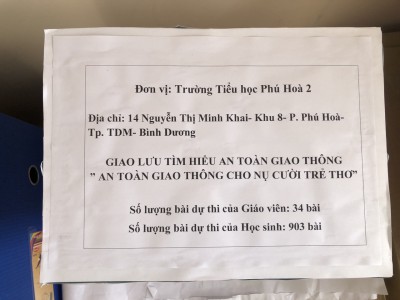 Đơn vị: Trường Tiểu học Phú Hoà 2
Địa chỉ: 14 Nguyễn Thị Minh Khai- Khu 8- P. Phú Hoà-
Tp. TDM- Bình Dương
GIAO LƯU TÌM HIỂU AN TOÀN GIAO THÔNG
" AN TOÀN GIAO THÔNG CHO NỤ CƯỜI TRẺ THƠ"
Số lượng bài dự thi của Giáo viên: 34 bài
Số lượng bài dự thi của Học sinh: 903 bài